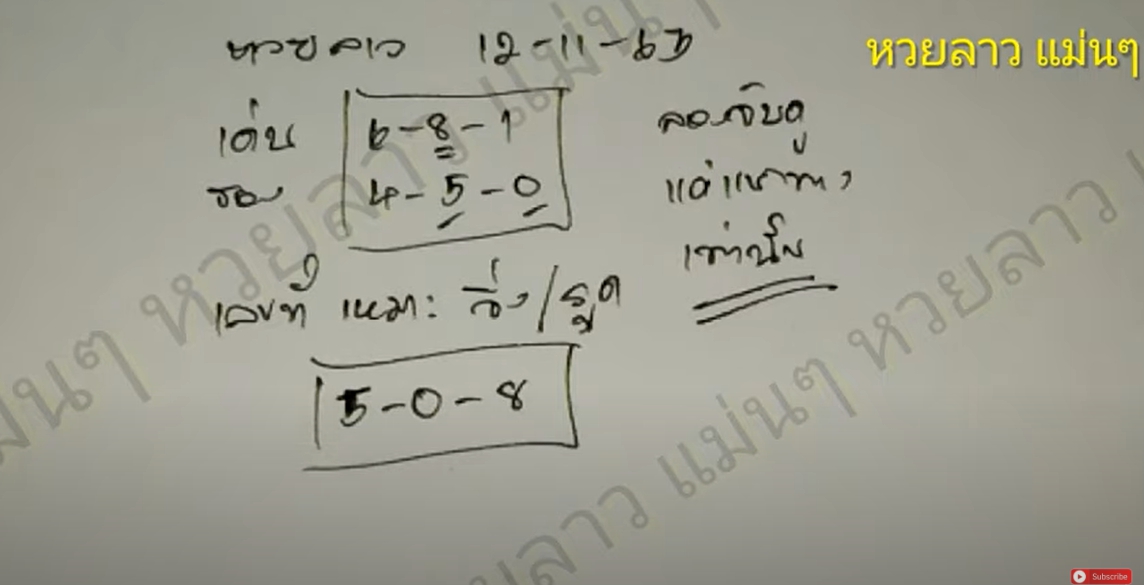 หวยลาว 12-11-65
หวยลาว แม่นๆ
เด่น 6-8-1
รอง 4-5-0
ลองจับดู
แค่แนวทาง
เท่านั้น
เลขที่ เหมาะ วิ่ง/รูด
5-0-8
หวยลาว แม่นๆ
หวยลาว แม่นๆ
Subscribe